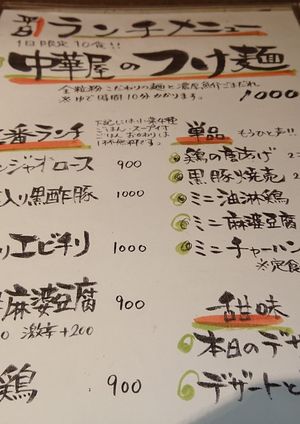 平日 ランチメニュー
1日限定10食!!
中華屋のつけ麺
全粒粉こだわりの麺と濃厚魚介ごまだれ。
※ゆで時間10分かかります。
1000
番ランチ
ごはん・スープ
ごはんおかわりは
1杯無料です。
ンジャオロース 900
入り黒酢豚 1000
エビチリ 1000
麻婆豆腐 900
激辛+200
鶏 900
単品
もうひと声!!
鶏の唐あげ 2
黒豚焼売 2
ミニ油淋鶏
ミニ麻婆豆腐
ミニチャーハン
※定食
甜味
本日のデザ
デザートと